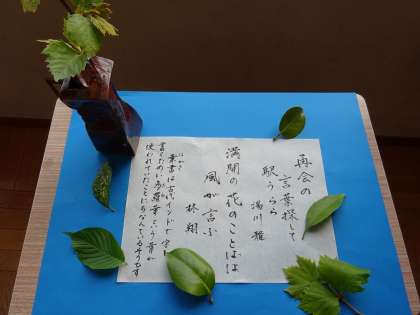 再会の
言葉探して
駅うらら
湯川雅
満開の花のことばは
風が言ふ
林翔
葉書は古代インドで字を
書くために多羅葉という葉が
使われていたことにちなんでいるそうです